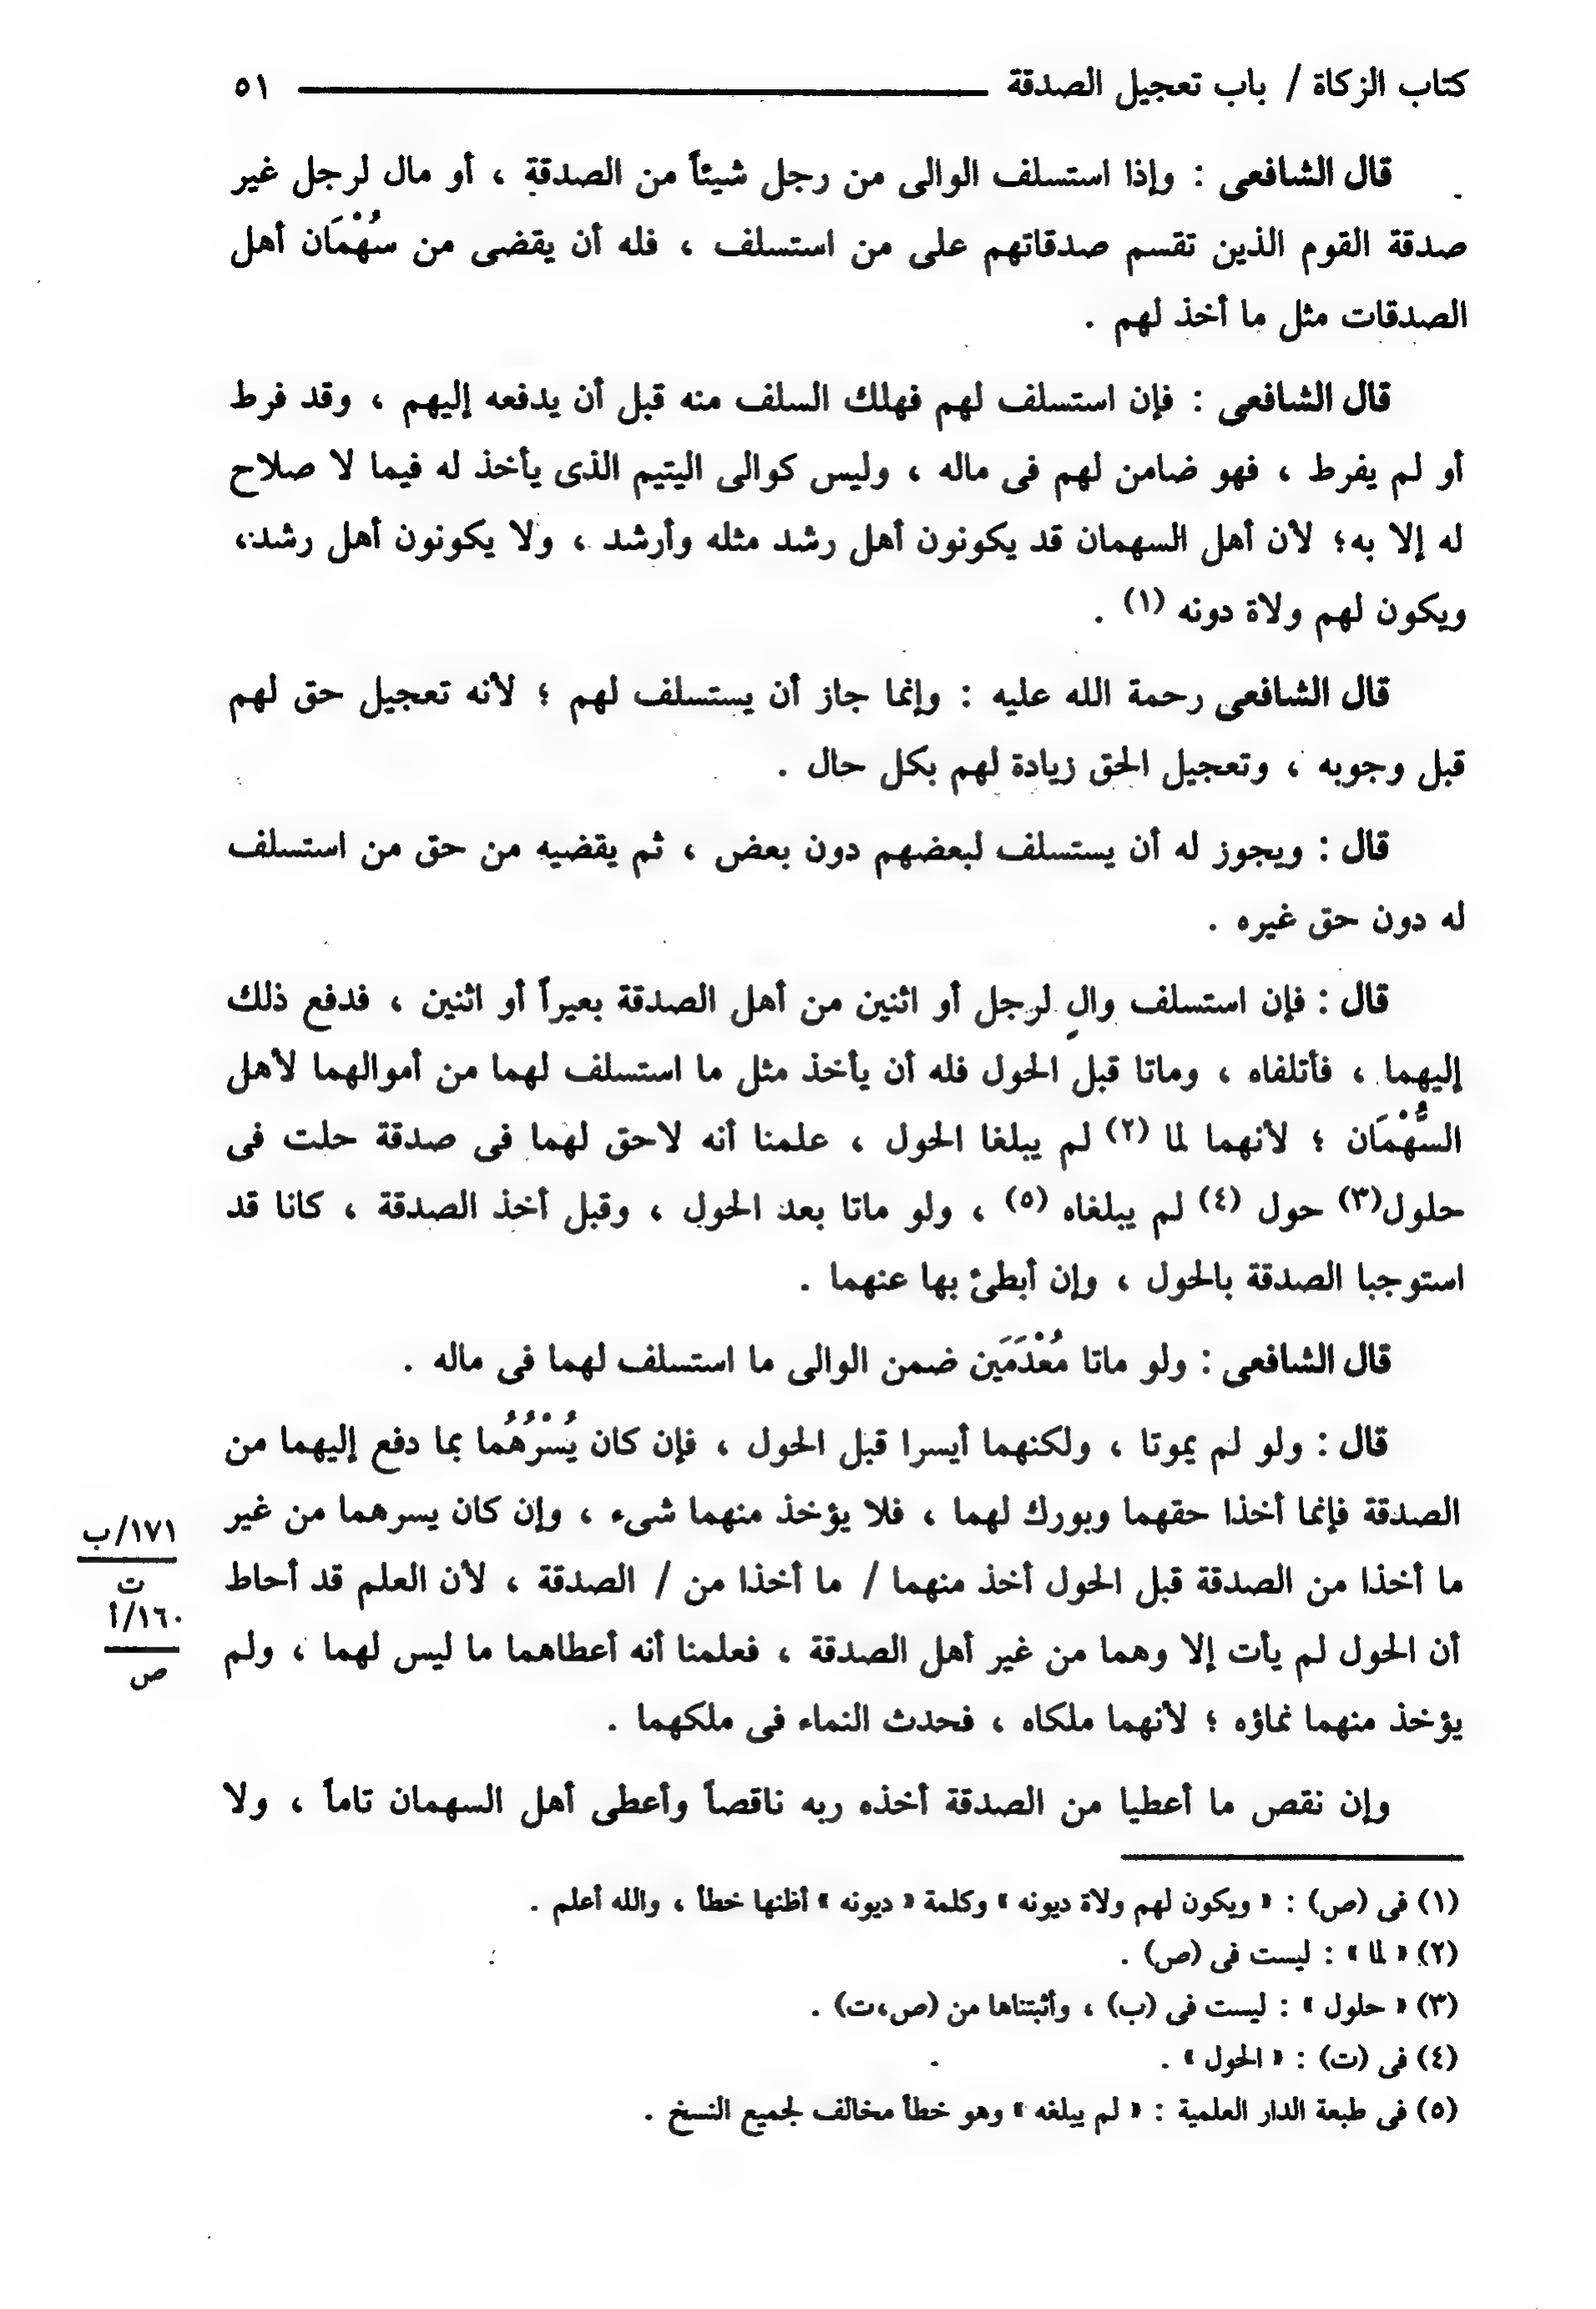 كتاب الزكاة / باب تعجيل الصدقة ٥١
قال الشافعى : وإذا استسلف الوالى من رجل شيئاً من الصدقة ، أو مال لرجل غير
صدقة القوم الذين تقسم صدقاتهم على من استسلف ، فله أن يقضى من سُهْمَان أهل
الصدقات مثل ما أخذ لهم .
قال الشافعى : فإن استسلف لهم فهلك السلف منه قبل أن يدفعه إليهم ، وقد فرط
أو لم يفرط ، فهو ضامن لهم فى ماله ، وليس كوالى اليتيم الذى يأخذ له فيما لا صلاح
له إلا به؛ لأن أهل السهمان قد يكونون أهل رشد مثله وأرشد ، ولا يكونون أهل رشد،
ويكون لهم ولاة دونه (١) .
قال الشافعى رحمة الله عليه : وإنما جاز أن يستسلف لهم ؛ لأنه تعجيل حق لهم
قبل وجوبه ، وتعجيل الحق زيادة لهم بكل حال .
قال : ويجوز له أن يستسلف لبعضهم دون بعض ، ثم يقضيه من حق من استسلف
له دون حق غيره .
قال : فإن استسلف والٍ لرجل أو اثنين من أهل الصدقة بعيراً أو اثنين ، فدفع ذلك
إليهما ، فأتلفاه ، وماتا قبل الحول فله أن يأخذ مثل ما استسلف لهما من أموالهما لأهل
السُّهْمَان ؛ لأنهما لما (٢) لم يبلغا الحول ، علمنا أنه لاحق لهما فى صدقة حلت فى
حلول(٣) حول (٤) لم يبلغاه (٥) ، ولو ماتا بعد الحول ، وقبل أخذ الصدقة ، كانا قد
استوجبا الصدقة بالحول ، وإن أبطئ بها عنهما .
قال الشافعى : ولو ماتا مُعْدَمَين ضمن الوالى ما استسلف لهما فى ماله .
قال : ولو لم يموتا ، ولكنهما أيسرا قبل الحول ، فإن كان يُسْرُهُما بما دفع إليهما من
الصدقة فإنما أخذا حقهما وبورك لهما ، فلا يؤخذ منهما شىء ، وإن كان يسرهما من غير
ما أخذا من الصدقة قبل الحول أخذ منهما / ما أخذا من / الصدقة ، لأن العلم قد أحاط
أن الحول لم يأت إلا وهما من غير أهل الصدقة ، فعلمنا أنه أعطاهما ما ليس لهما ، ولم
يؤخذ منهما نماؤه ؛ لأنهما ملكاه ، فحدث النماء فى ملكهما .
وإن نقص ما أعطيا من الصدقة أخذه ربه ناقصاً وأعطى أهل السهمان تاماً ، ولا
١٧١/ب
ت
١٦٠/أ
ص
(١) فى (ص) : « ويكون لهم ولاة ديونه » وكلمة « ديونه » أظنها خطأ ، والله أعلم .
(٢) « لما » : ليست فى (ص) .
(٣) « حلول » : ليست فى (ب) ، وأثبتناها من (ص،ت) .
(٤) فى (ت) : « الحول » .
(٥) فى طبعة الدار العلمية : « لم يبلغه » وهو خطأ مخالف لجميع النسخ .